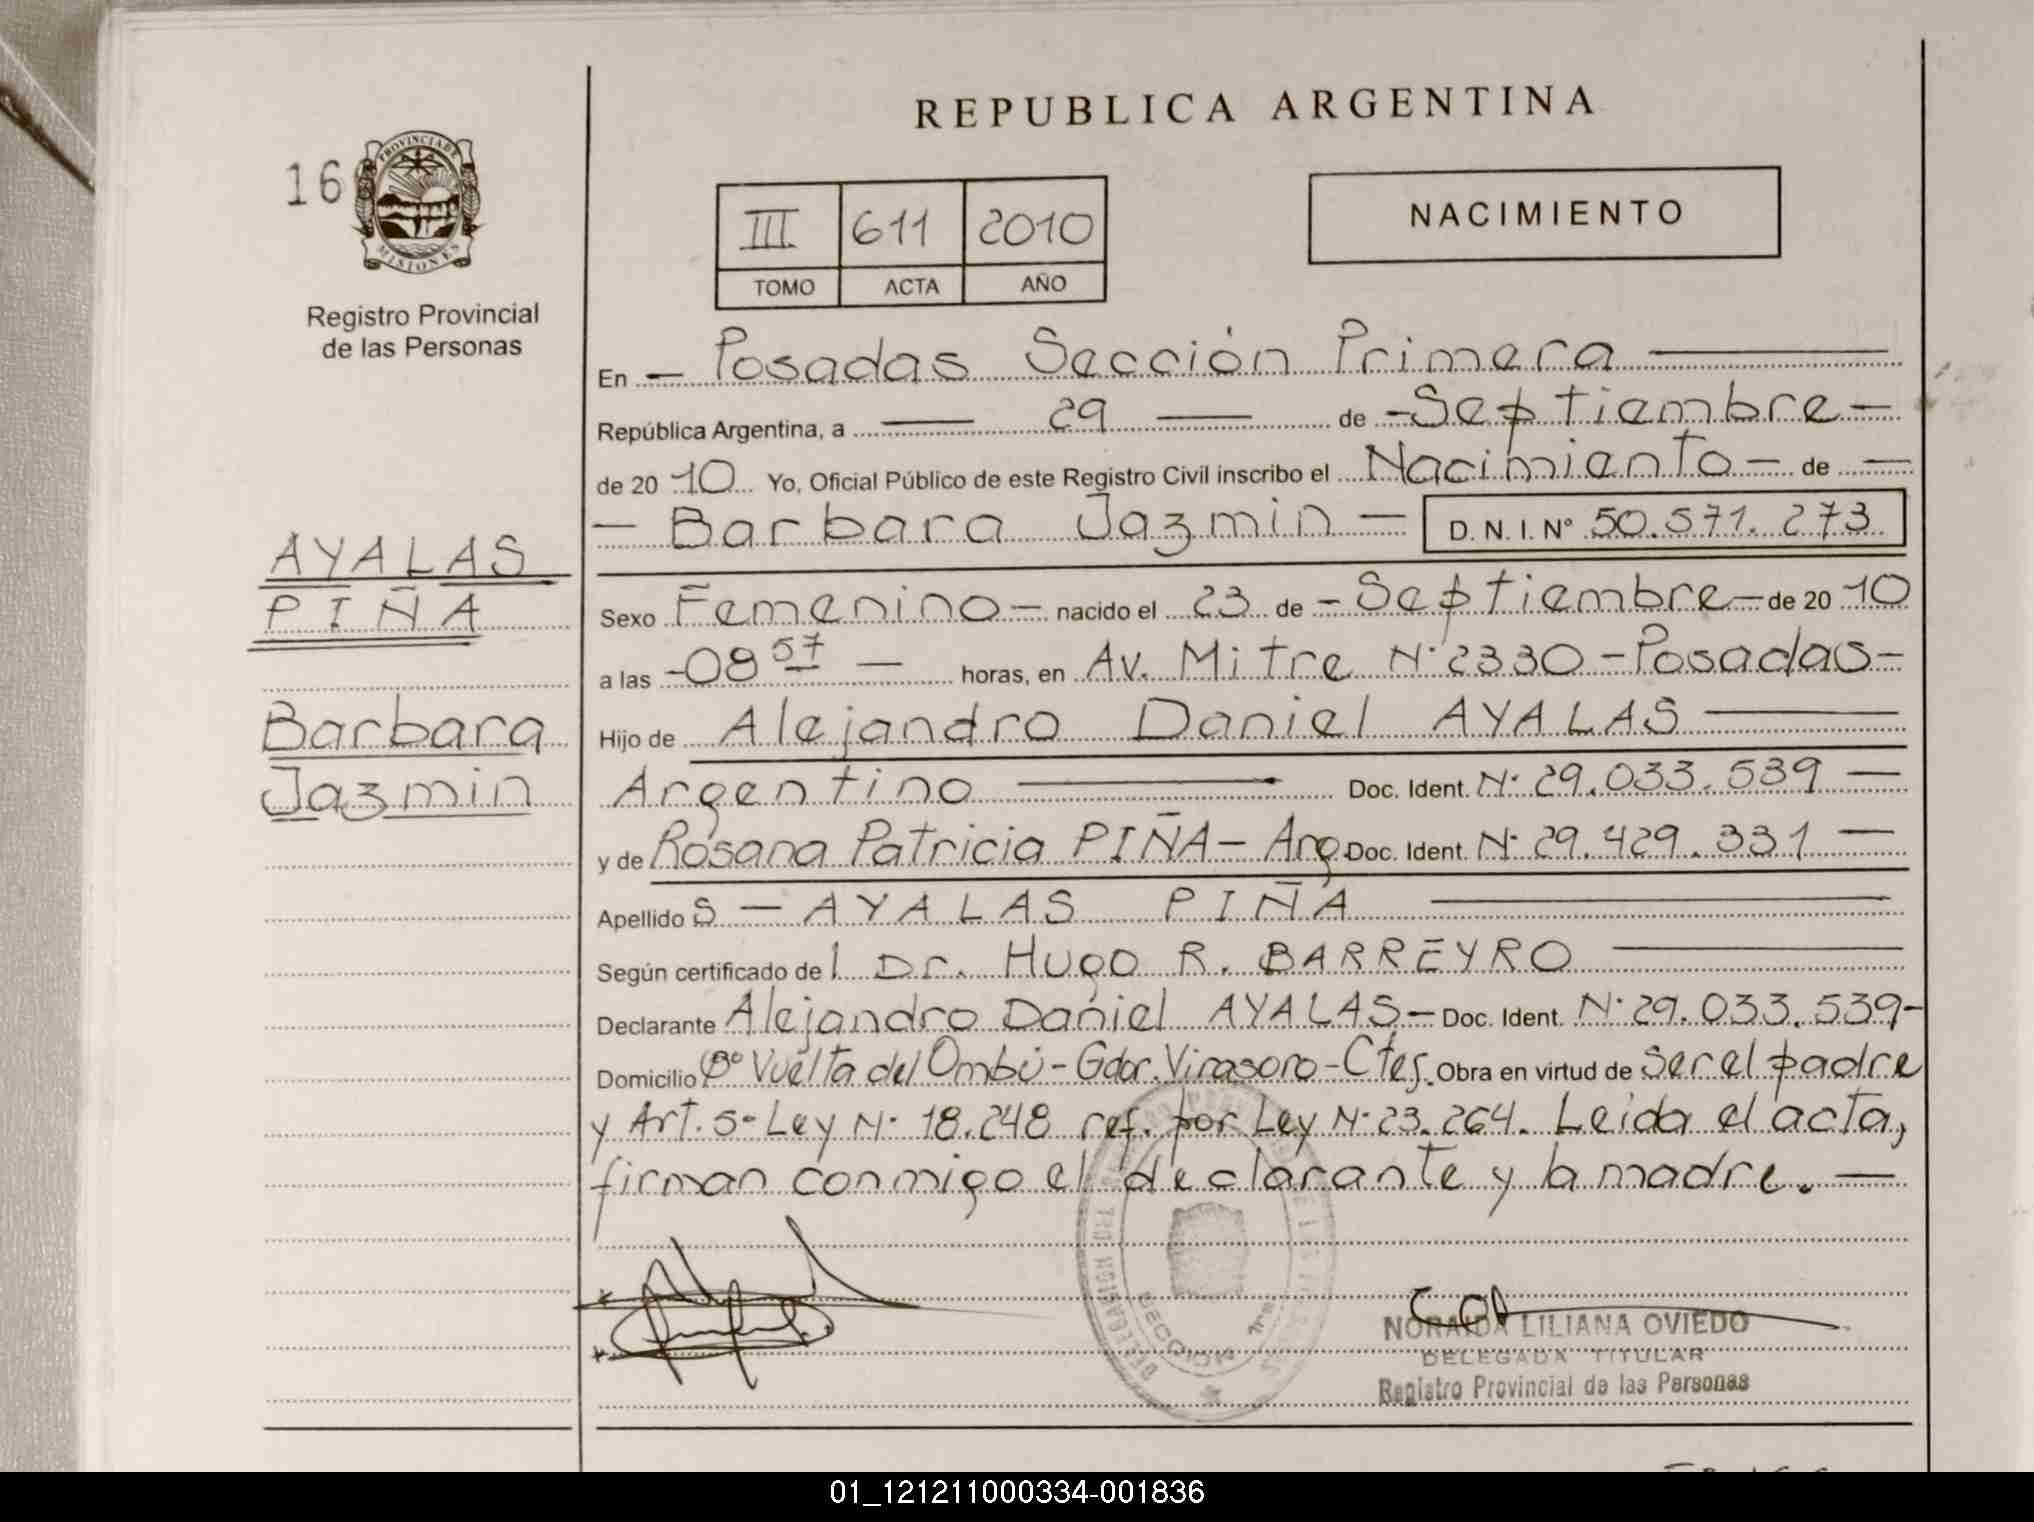 REPUBLICA ARGENTINA
16
PROVINCIA DE
MISIONES
Registro Provincial
de las Personas
III 611 2010
TOMO ACTA AÑO
NACIMIENTO
En – Posadas Sección Primera —
República Argentina, a — 29 — de – Septiembre –
de 20 10 Yo, Oficial Público de este Registro Civil inscribo el Nacimiento – de —
– Barbara Jazmin – D. N. I. Nº 50.571.273
AYALAS
PIÑA
Barbara
Jazmin
Sexo Femenino – nacido el 23 de – Septiembre – de 20 10
a las -08 57 — horas, en Av. Mitre Nº 2330 – Posadas –
Hijo de Alejandro Daniel AYALAS —
Argentino — Doc. Ident. Nº 29.033.539 —
y de Rosana Patricia PIÑA – Arg. Doc. Ident. Nº 29.429.331 —
Apellido s – AYALAS PIÑA —
Según certificado de l Dr. Hugo R. BARREYRO —
Declarante Alejandro Daniel AYALAS – Doc. Ident. Nº 29.033.539 –
Domicilio Bº Vuelta del Ombú – Gdor. Virasoro – Ctes. Obra en virtud de ser el padre
y Art. 5º Ley Nº 18.248 ref. por Ley Nº 23.264. Leida el acta,
firman conmigo el declarante y la madre. —
SECCION 1ra
NORAIDA LILIANA OVIEDO
DELEGADA TITULAR
Registro Provincial de las Personas
01_121211000334-001836